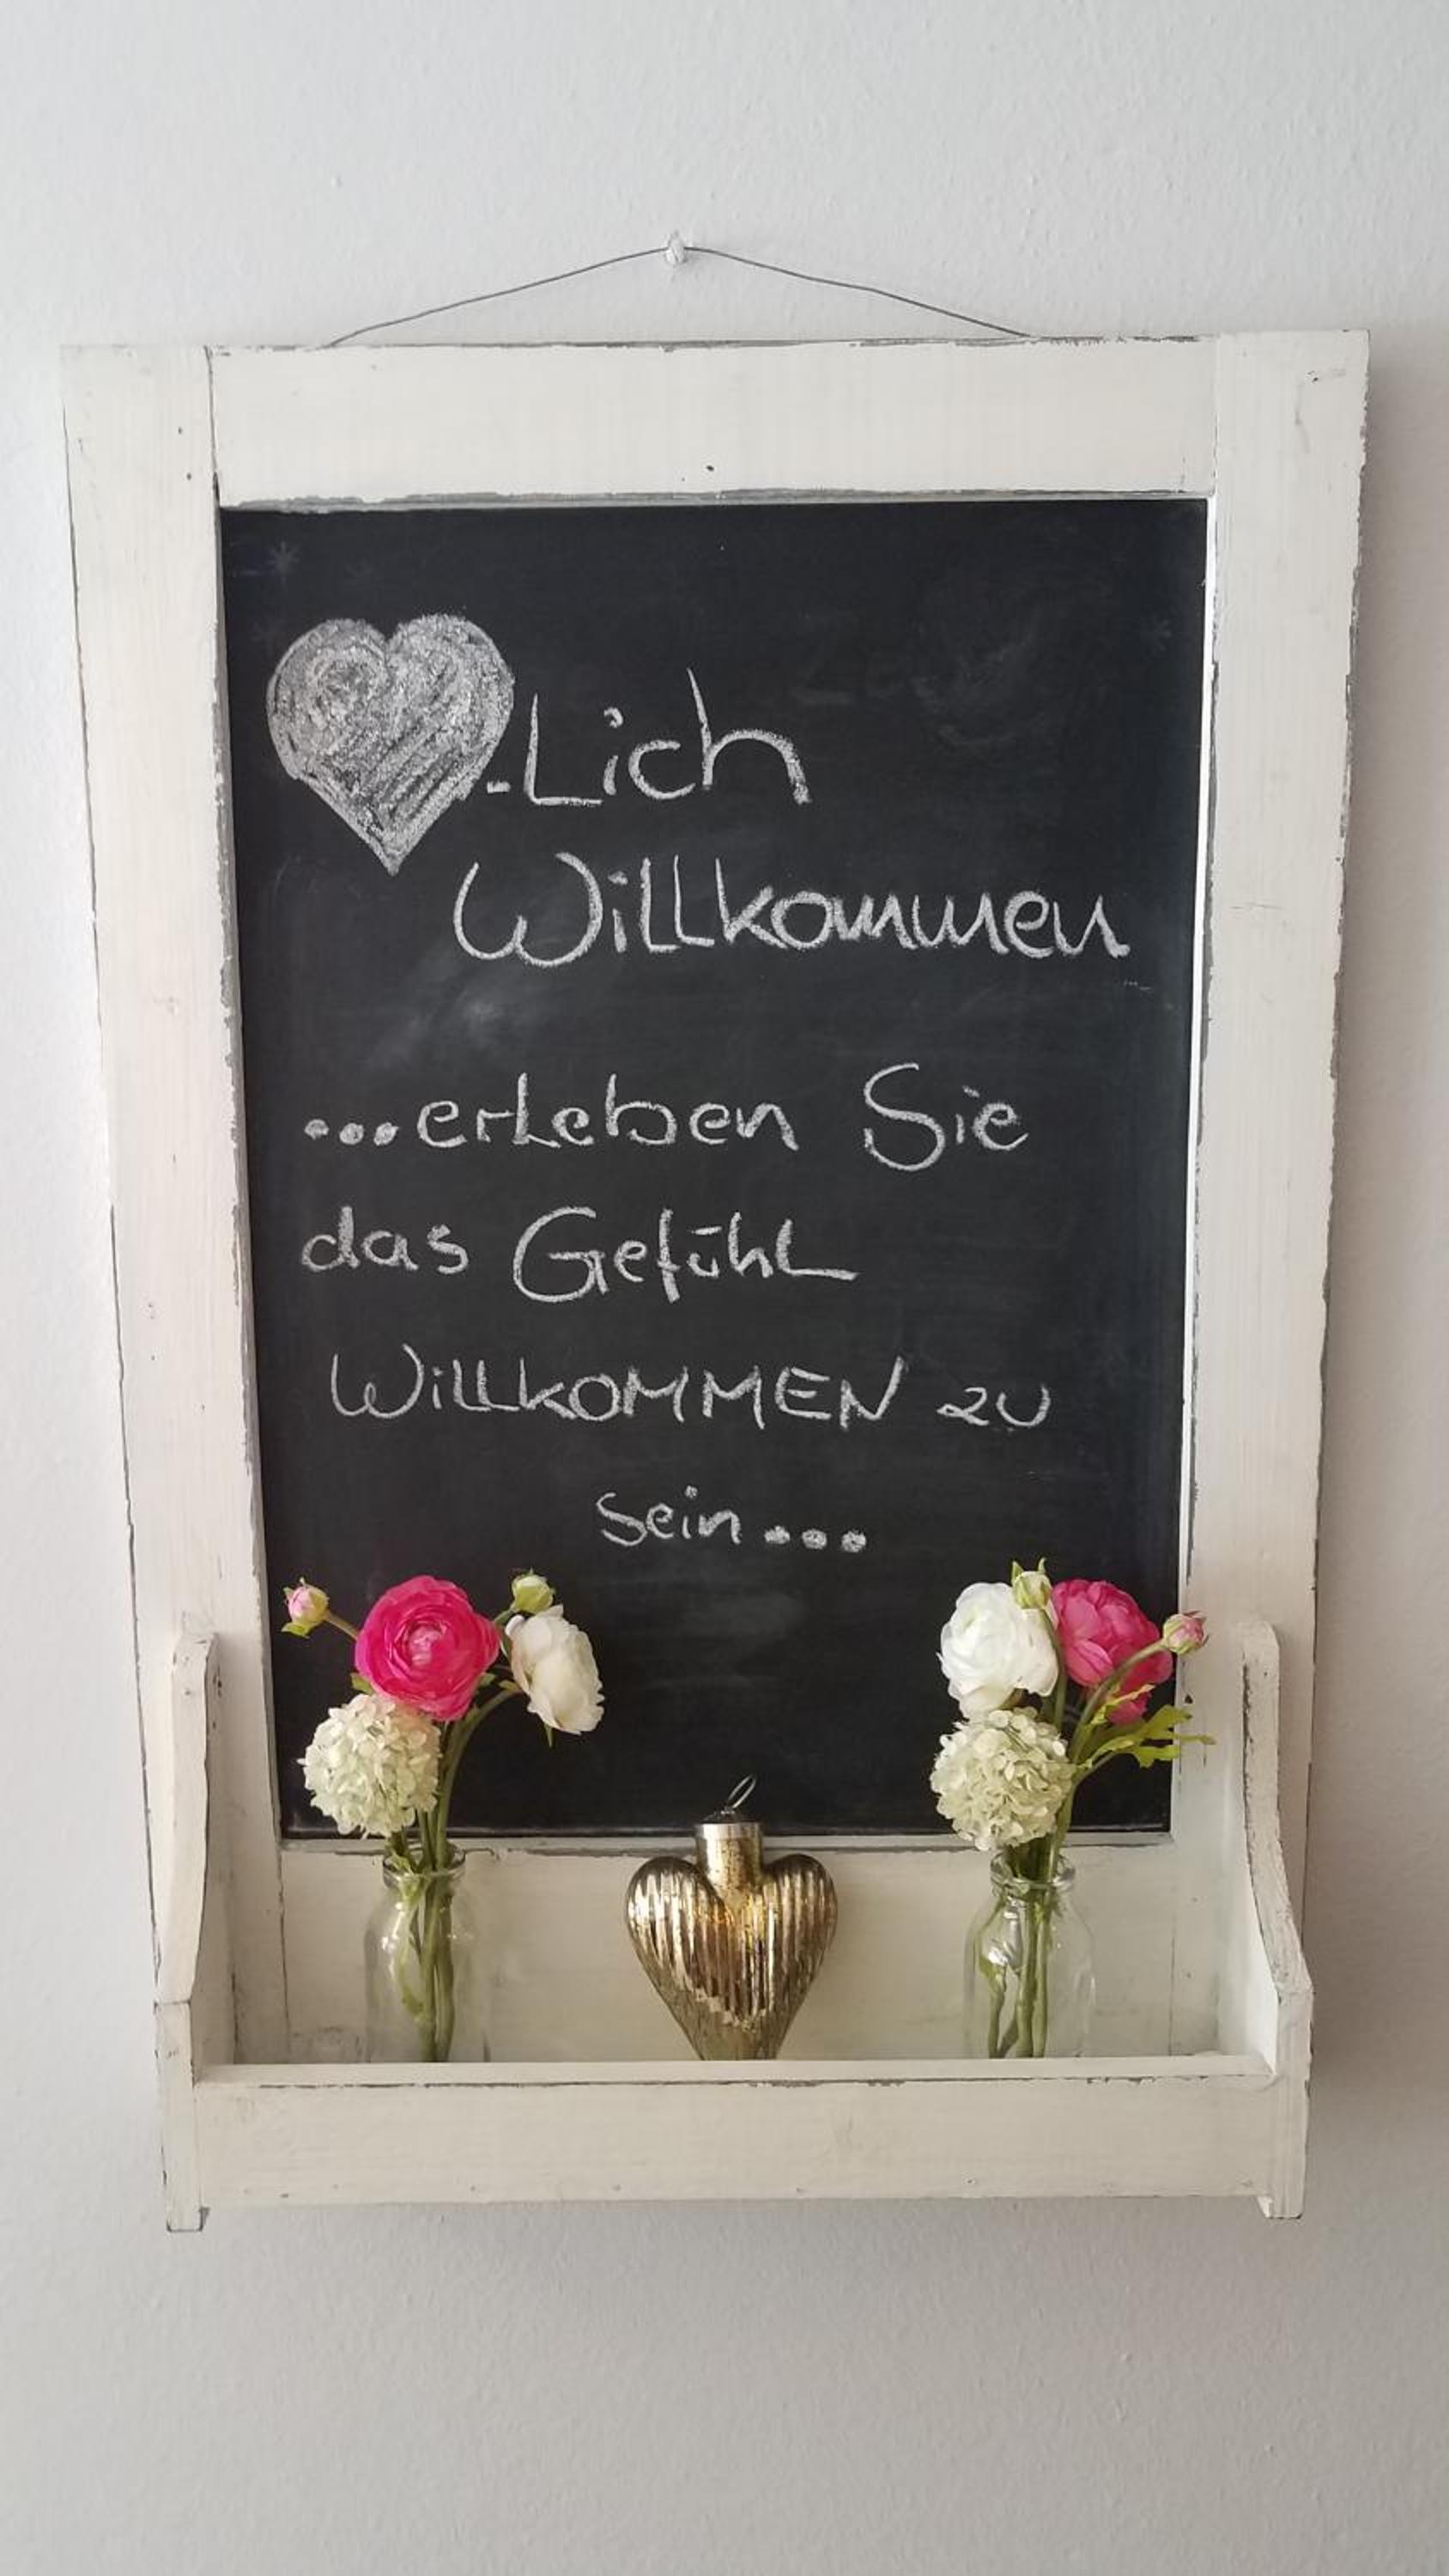 -Lich
Willkommen
...erleben Sie
das Gefühl
WiLLKOMMEN zu
sein...